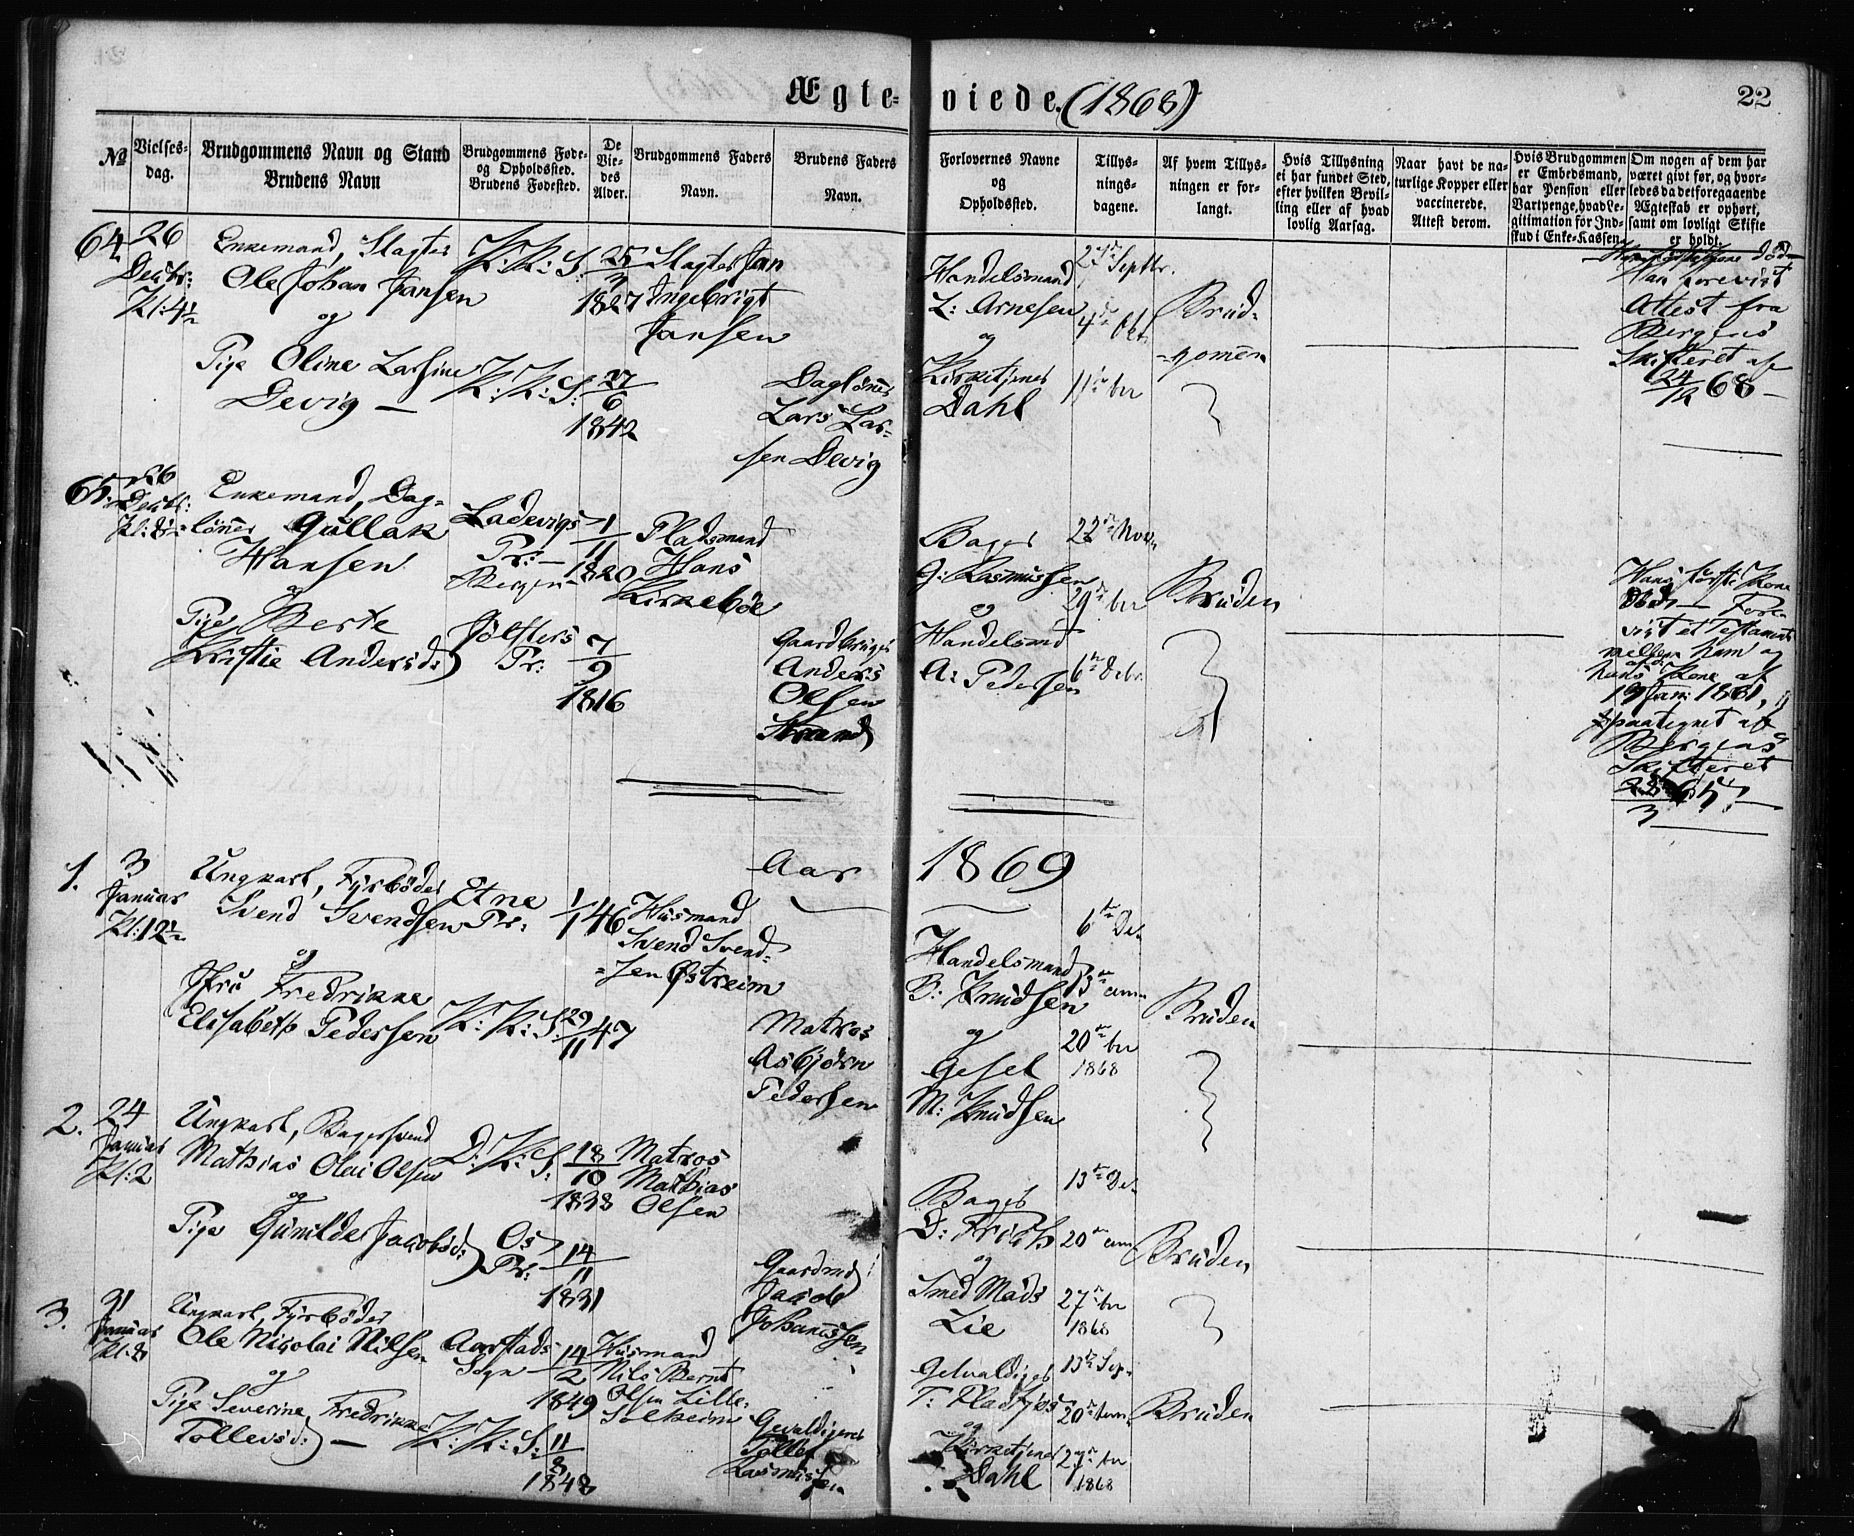 Ægte-
viede. (1868)
22
No
Vielses-
dag.
Brudgommens Navn og Stand
Brudens Navn
Brudgommens Føde-
og Opholdssted.
Brudens Fødested.
De
Vie-
des
Alder.
Brudgommens Faders
Navn.
Brudens Faders
Navn.
Forlovernes Navne
og
Opholdssted.
Tillys-
nings-
dagene.
Af hvem Tillys-
ningen er for-
langt.
Hvis Tillysning
ei har fundet Sted,
efter hvilken Bevil-
ling eller af hvad
lovlig Aarsag.
Naar havt de na-
turlige Kopper eller
vaccinerede.
Attest derom.
Hvis Brudgommen
er Embedsmand,
har Pension eller
Vartpenge, hvad Le-
gitimation for Ind-
skud i Enke-Kassen.
Om nogen af dem har
været givt før, og hvor-
ledes da det foregaaende
Ægteskab er ophørt,
samt om lovligt Skifte
er holdt.
64
26
Decbr:
Kl: 4½
Enkemand, Slagter
Ole Johan Jansen
og
Pige Oline Larsine
Devig —
K: K: S:
K: K: S:
25
1827
27
6
1842
Slagter Jan
Ingebrigt
Jansen
Dagløner
Lars Lar-
sen Devig
Handelsmand
L: Arnesen
og
Kirketjener
Dahl
27de Septbr.
4de Oct.
11te
Brud-
gomen
død
Han forevist
Attest fra
Bergens
Skifteret af
24
12 68 —
65
26
Decbr:
Kl: 8
Enkemand, Dag-
løner Gullak
Hansen
og
Pige Berte
Kristie Andersd:
Ladevigs
Pr: —
Bergen
Jølsters
Pr:
1
11
1820
7
9
1816
Pladsmand
Hans
Kirkebøe
Gaardbruger
Anders
Olsen
Strand
Bager
G: Rasmussen
og
Handelsmd
A: Pedersen
22de Novbr
29de
6te Debr.
Bruden
Hans første Kone
død — Fore-
vist et Testament
mellem ham og
hans Kone af
19 Jan: 1861,
paategnet af
Bergens
Skifteret
3
Aar
1869
1.
3
Januar
Kl: 12½
Ungkarl, Fyrbøder
Svend Svendsen
og
Fredrikke
Elisabeth Pedersen
Etne
Pr:
K: K: S:
1
1 46
29
11 47
Husmand
Svend Svend-
sen Østreim
Matros
Asbjørn
Pedersen
Handelsmand
B: Knudsen
og
Gesel
M: Knudsen
6te De.
13de
20de
1868
Bruden
2.
24
Januar
Kl: 2
Ungkarl, Bagersvend
Mathias Olai Olsen
og
Pige Gunilde Jacobsd:
D: K: S:
Os
Pr:
18
10
1838
14
11
1831
Matros
Mathias
Olsen
Gaardmd
Jacob
Johannssen
Bager
D: Frich
og
Smed Mads
Lie
13de De.
20de
27de
1868
Bruden
3.
31
Januar
Kl: 8
Ungkarl, Fyrbøder
Ole Nicolai Nilsen
og
Pige Severine Fredrikke
Tollevsd: —
Aarstads
Sogn —
K: K: S:
14
2
1849
11
8
1848
Husmand
Nils Bernt
Olsen Lille-
Solheim
Gevaldigeren
Tollef
Rasmussen
Gevaldiger
og
Kirketjener
Dahl
13de Sep.
20de
27de
1868
Bruden